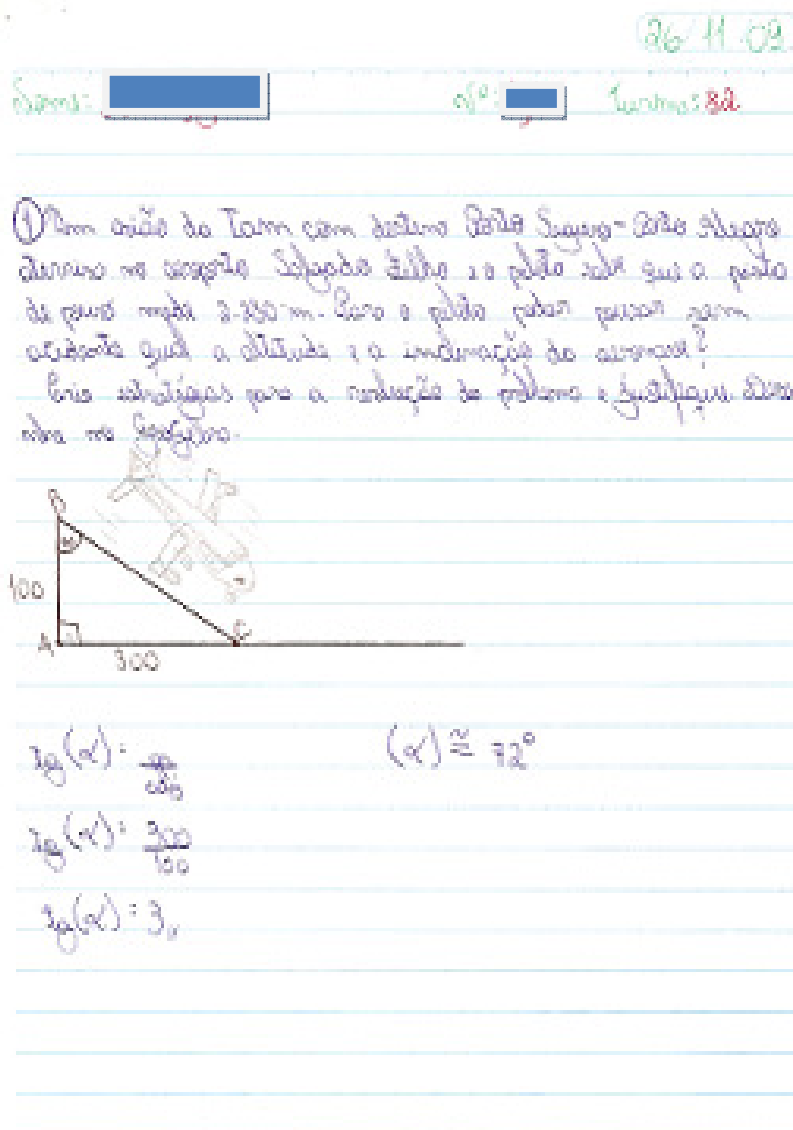 26/11/09
Nome: Nº: Turma: 82
① Um avião da Tam com destino Porto Seguro - Porto Alegre
no aeroporto Salgado Filho e o piloto sabe que a pista
de pouso mede 2.250 m. Para o piloto poder pousar sem
acidente qual a altitude e a inclinação da aeronave?
Crie estratégias para a resolução do problema e justifique.
no
B
α
100
A
C
300
tg(α) = (α) ≅ 72°
tg(α) = 300/100
tg(α) = 3,,